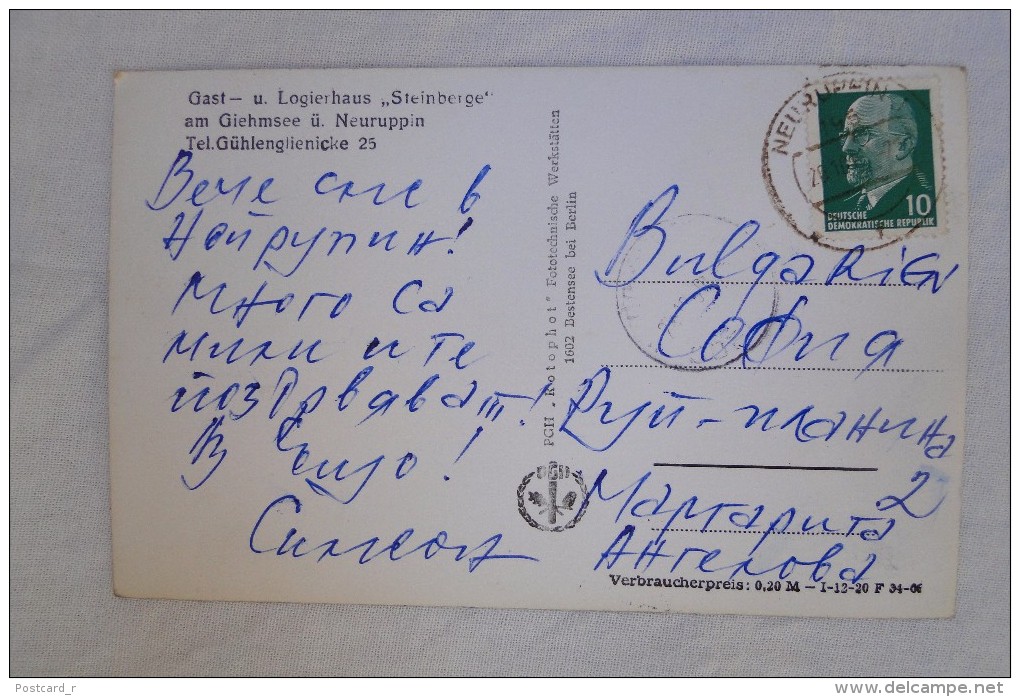 Gast— u. Logierhaus „Steinberge“
am Giehmsee ü. Neuruppin
Tel.Gühlenglienicke 25
Вече сме в
Нойрупин!
Много са
мили и те
поздрвяват!
В
Симеон
PGH „Rotophot“ Fototechnische Werkstätten
1602 Bestensee bei Berlin
NEURUPPIN
10
DEUTSCHE
DEMOKRATISCHE REPUBLIK
BulgaRiEN
София
Руй-планина
2
Маргарита
Ангелова
Verbraucherpreis: 0,20 M — I-12-20 F 34-66
Postcard_r
www.delcampe.net